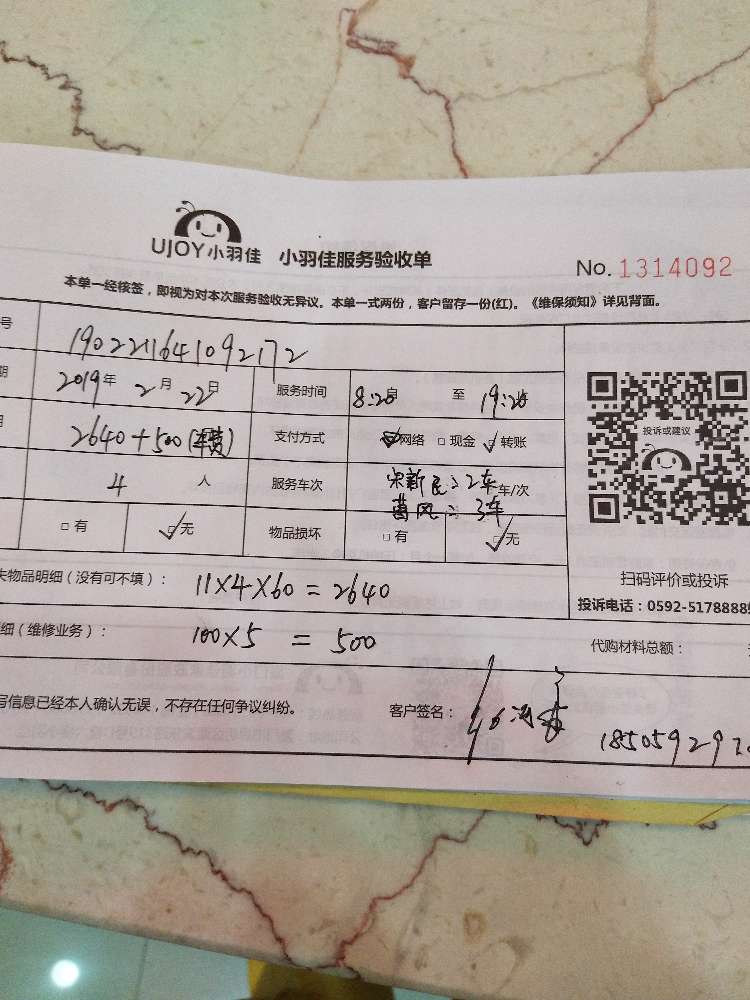 UJOY小羽佳 小羽佳服务验收单
No. 1314092
本单一经核签，即视为对本次服务验收无异议。本单一式两份，客户留存一份(红)。《维保须知》详见背面。
号 1902211641092172
期 2019年 2月 22日 服务时间 8:20 至 19:20
2640+500(车费) 支付方式 网络 □现金 转账
投诉或建议
4 人 服务车次 宋新民:2车 车/次
葛风:3车
□有 □无 物品损坏 □有 □无
扫码评价或投诉
失物品明细（没有可不填）： 11×4×60=2640
投诉电话：0592-5178888
细（维修业务）： 100×5 = 500 代购材料总额：
写信息已经本人确认无误，不存在任何争议纠纷。 客户签名：
185059292